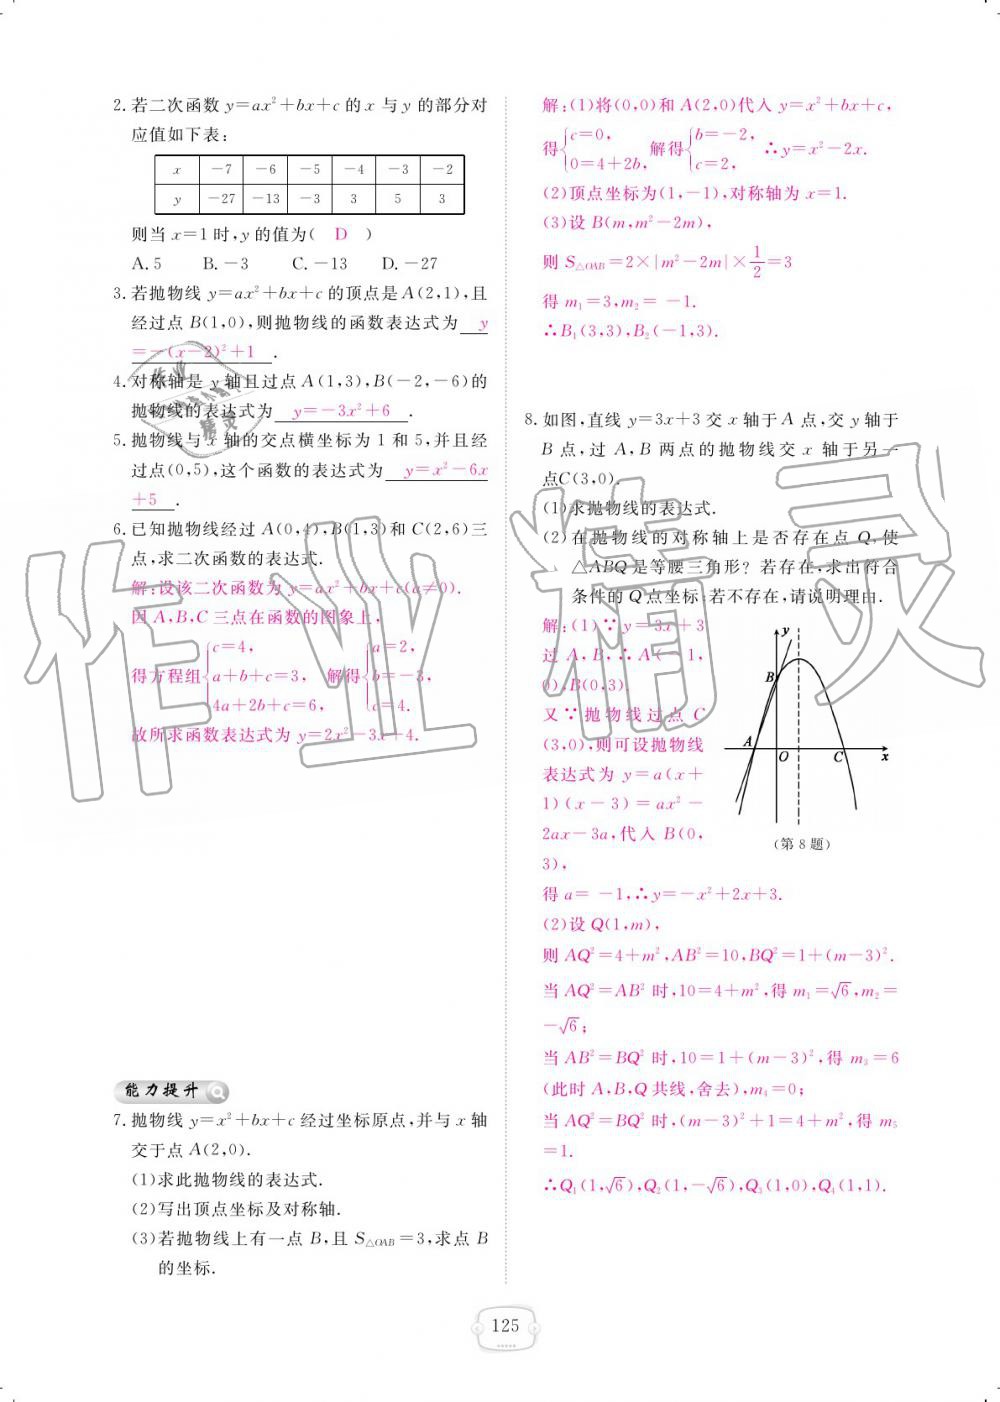 2. 若二次函数 y=ax²+bx+c 的 x 与 y 的部分对
应值如下表:
x -7 -6 -5 -4 -3 -2
y -27 -13 -3 3 5 3
则当 x=1 时,y 的值为( D )
A. 5 B. -3 C. -13 D. -27
3. 若抛物线 y=ax²+bx+c 的顶点是 A(2,1),且
经过点 B(1,0),则抛物线的函数表达式为 y
=-(x-2)²+1 .
4. 对称轴是 y 轴且过点 A(1,3),B(-2,-6)的
抛物线的表达式为 y=-3x²+6 .
5. 抛物线与 x 轴的交点横坐标为 1 和 5,并且经
过点(0,5),这个函数的表达式为 y=x²-6x
+5 .
6. 已知抛物线经过 A(0,4),B(1,3)和 C(2,6)三
点,求二次函数的表达式.
解:设该二次函数为 y=ax²+bx+c(a≠0).
因 A,B,C 三点在函数的图象上,
c=4, a=2,
得方程组 a+b+c=3, 解得 b=-3,
4a+2b+c=6, c=4.
故所求函数表达式为 y=2x²-3x+4.
能力提升
7. 抛物线 y=x²+bx+c 经过坐标原点,并与 x 轴
交于点 A(2,0).
(1)求此抛物线的表达式.
(2)写出顶点坐标及对称轴.
(3)若抛物线上有一点 B,且 S△OAB=3,求点 B
的坐标.
解:(1)将(0,0)和 A(2,0)代入 y=x²+bx+c,
c=0, b=-2,
得 解得 ∴y=x²-2x.
0=4+2b, c=2,
(2)顶点坐标为(1,-1),对称轴为 x=1.
(3)设 B(m,m²-2m),
则 S△OAB=2×|m²-2m|×1/2=3
得 m₁=3,m₂=-1.
∴B₁(3,3),B₂(-1,3).
8. 如图,直线 y=3x+3 交 x 轴于 A 点,交 y 轴于
B 点,过 A,B 两点的抛物线交 x 轴于另一
点C(3,0).
(1)求抛物线的表达式.
(2)在抛物线的对称轴上是否存在点 Q,使
△ABQ 是等腰三角形? 若存在,求出符合
条件的 Q 点坐标;若不存在,请说明理由.
解:(1)∵y=3x+3
过 A,B,∴A(-1,
0),B(0,3).
又∵抛物线过点 C
(3,0),则可设抛物线
表达式为 y=a(x+
1)(x-3)=ax²-
2ax-3a,代入 B(0,
3),
y
B
A O C x
(第 8 题)
得 a=-1,∴y=-x²+2x+3.
(2)设 Q(1,m),
则 AQ²=4+m²,AB²=10,BQ²=1+(m-3)².
当 AQ²=AB² 时,10=4+m²,得 m₁=√6,m₂=
-√6;
当 AB²=BQ² 时,10=1+(m-3)²,得 m₃=6
(此时 A,B,Q 共线,舍去),m₄=0;
当 AQ²=BQ² 时,(m-3)²+1=4+m²,得 m₅
=1.
∴Q₁(1,√6),Q₂(1,-√6),Q₃(1,0),Q₄(1,1).
125
作业精灵